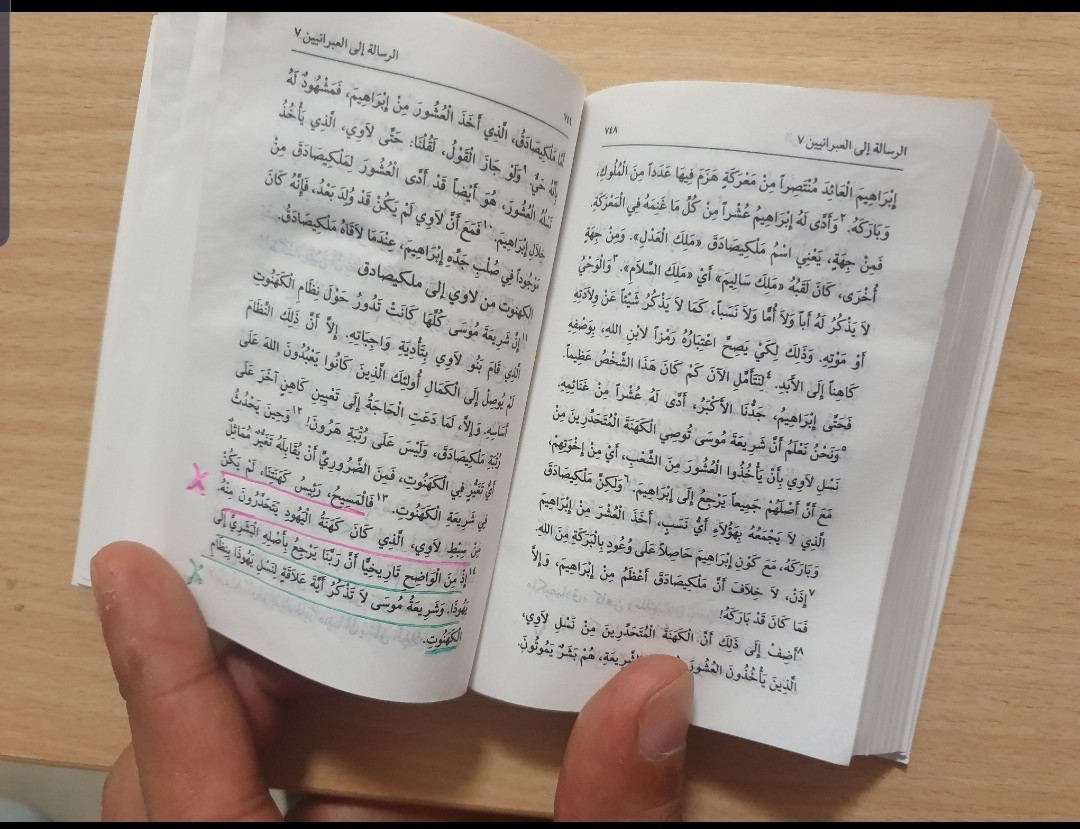 الرسالة إلى العبرانيين ٧
٧٤٨
إِبْرَاهِيمَ الْعَائِدَ مُنْتَصِراً مِنْ مَعْرَكَةٍ هَزَمَ فِيهَا عَدَداً مِنَ الْمُلُوكِ،
وَبَارَكَهُ. ٢وَأَدَّى لَهُ إِبْرَاهِيمُ عُشْراً مِنْ كُلِّ مَا غَنِمَهُ فِي الْمَعْرَكَةِ.
فَمِنْ جِهَةٍ، يَعْنِي اسْمُ مَلْكِيصَادَقَ «مَلِكَ الْعَدْلِ». وَمِنْ جِهَةٍ
أُخْرَى، كَانَ لَقَبُهُ «مَلِكَ سَالِيمَ» أَيْ «مَلِكَ السَّلاَمِ». ٣وَالْوَحْيُ
لاَ يَذْكُرُ لَهُ أَباً وَلاَ أُمًّا وَلاَ نَسَباً، كَمَا لاَ يَذْكُرُ شَيْئاً عَنْ وِلاَدَتِهِ
أَوْ مَوْتِهِ. وَذَلِكَ لِكَيْ يَصِحَّ اعْتِبَارُهُ رَمْزاً لابْنِ اللهِ، بِوَصْفِهِ
كَاهِناً إِلَى الأَبَدِ. ٤لِنَتَأَمَّلِ الآنَ كَمْ كَانَ هَذَا الشَّخْصُ عَظِيماً.
فَحَتَّى إِبْرَاهِيمُ، جَدُّنَا الأَكْبَرُ، أَدَّى لَهُ عُشْراً مِنْ غَنَائِمِهِ.
٥وَنَحْنُ نَعْلَمُ أَنَّ شَرِيعَةَ مُوسَى تُوصِي الْكَهَنَةَ الْمُتَحَدِّرِينَ مِنْ
نَسْلِ لاَوِي بِأَنْ يَأْخُذُوا الْعُشُورَ مِنَ الشَّعْبِ، أَيْ مِنْ إِخْوَتِهِمْ،
مَعَ أَنَّ أَصْلَهُمْ جَمِيعاً يَرْجِعُ إِلَى إِبْرَاهِيمَ. ٦وَلَكِنَّ مَلْكِيصَادَقَ
الَّذِي لاَ يَجْمَعُهُ بِهَؤُلاَءِ أَيُّ نَسَبٍ، أَخَذَ الْعُشْرَ مِنْ إِبْرَاهِيمَ
وَبَارَكَهُ، مَعَ كَوْنِ إِبْرَاهِيمَ حَاصِلاً عَلَى وُعُودٍ بِالْبَرَكَةِ مِنَ اللهِ.
٧إِذَنْ، لاَ خِلاَفَ أَنَّ مَلْكِيصَادَقَ أَعْظَمُ مِنْ إِبْرَاهِيمَ، وَإِلاَّ
فَمَا كَانَ قَدْ بَارَكَهُ!
٨أَضِفْ إِلَى ذَلِكَ أَنَّ الْكَهَنَةَ الْمُتَحَدِّرِينَ مِنْ نَسْلِ لاَوِي،
الَّذِينَ يَأْخُذُونَ الْعُشُورَ الشَّرِيعَةِ، هُمْ بَشَرٌ يَمُوتُونَ.
الرسالة إلى العبرانيين ٧
أَمَّا مَلْكِيصَادَقُ، الَّذِي أَخَذَ الْعُشُورَ مِنْ إِبْرَاهِيمَ، فَمَشْهُودٌ لَهُ
بِأَنَّهُ حَيٌّ. ٩وَلَوْ جَازَ الْقَوْلُ، لَقُلْنَا: حَتَّى لاَوِي، الَّذِي يَأْخُذُ
نَسْلُهُ الْعُشُورَ، هُوَ أَيْضاً قَدْ أَدَّى الْعُشُورَ لِمَلْكِيصَادَقَ مِنْ
خِلاَلِ إِبْرَاهِيمَ. ١٠فَمَعَ أَنَّ لاَوِي لَمْ يَكُنْ قَدْ وُلِدَ بَعْدُ، فَإِنَّهُ كَانَ
مَوْجُوداً فِي صُلْبِ جَدِّهِ إِبْرَاهِيمَ، عِنْدَمَا لاَقَاهُ مَلْكِيصَادَقُ.
الكهنوت من لاوي إلى ملكيصادق
١١إِنَّ شَرِيعَةَ مُوسَى كُلَّهَا كَانَتْ تَدُورُ حَوْلَ نِظَامِ الْكَهَنُوتِ
الَّذِي قَامَ بَنُو لاَوِي بِتَأْدِيَةِ وَاجِبَاتِهِ. إِلاَّ أَنَّ ذَلِكَ النِّظَامَ
لَمْ يُوصِلْ إِلَى الْكَمَالِ أُولَئِكَ الَّذِينَ كَانُوا يَعْبُدُونَ اللهَ عَلَى
أَسَاسِهِ. وَإِلاَّ، لَمَا دَعَتِ الْحَاجَةُ إِلَى تَعْيِينِ كَاهِنٍ آخَرَ عَلَى
رُتْبَةِ مَلْكِيصَادَقَ، وَلَيْسَ عَلَى رُتْبَةِ هَرُونَ! ١٢وَحِينَ يَحْدُثُ
أَيُّ تَغَيُّرٍ فِي الْكَهَنُوتِ، فَمِنَ الضَّرُورِيِّ أَنْ يُقَابِلَهُ تَغَيُّرٌ مُمَاثِلٌ
فِي شَرِيعَةِ الْكَهَنُوتِ. ١٣فَالْمَسِيحُ، رَئِيسُ كَهَنَتِنَا، لَمْ يَكُنْ
مِنْ سِبْطِ لاَوِي، الَّذِي كَانَ كَهَنَةُ الْيَهُودِ يَتَحَدَّرُونَ مِنْهُ.
١٤إِذْ مِنَ الْوَاضِحِ تَارِيخِيًّا أَنَّ رَبَّنَا يَرْجِعُ بِأَصْلِهِ الْبَشَرِيِّ إِلَى
يَهُوذَا. وَشَرِيعَةُ مُوسَى لاَ تَذْكُرُ أَيَّةَ عَلاَقَةٍ لِنَسْلِ يَهُوذَا بِنِظَامِ
الْكَهَنُوتِ.